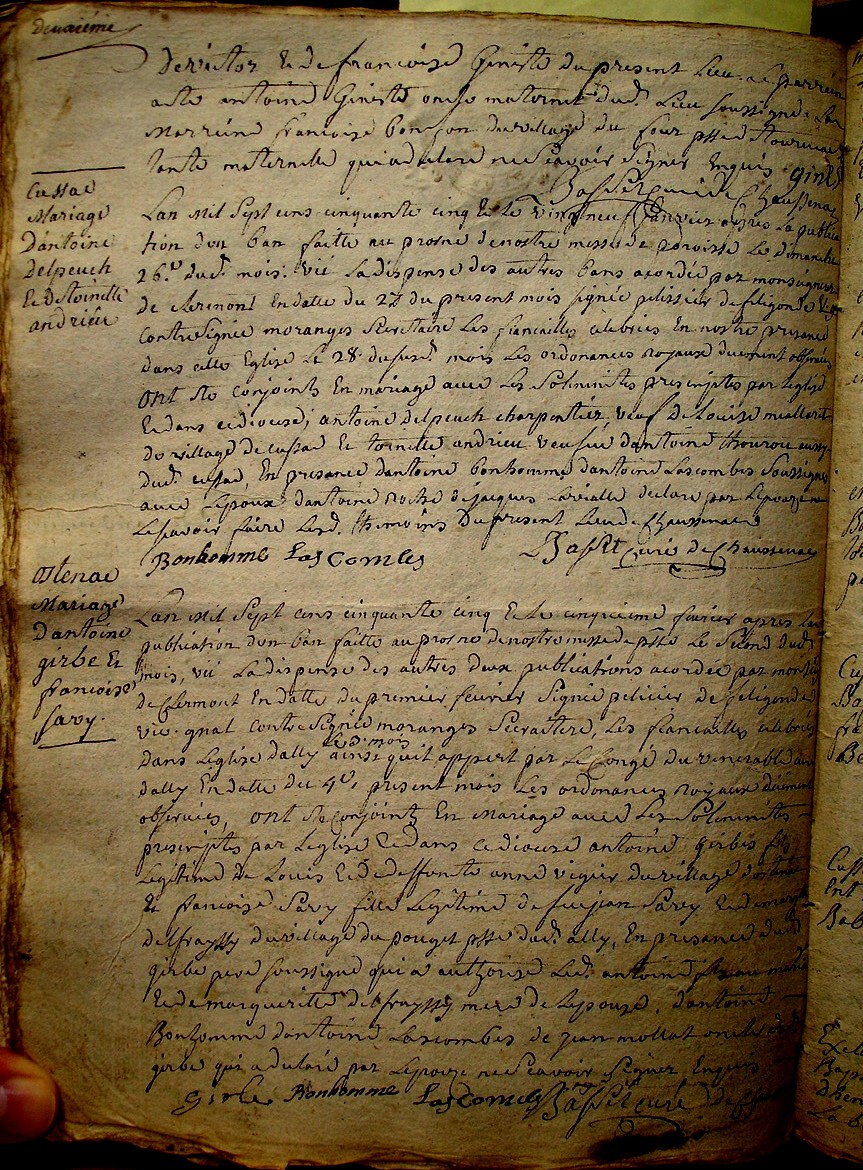 deuxiéme
de victor & de francoise Geneste du present Lieu
a ete antoine Geneste oncle maternel dud. Lieu soussigné & La
Marreine francoise bonfon du village du four psse
tante maternelle qui a declaré ne scavoir signer Enquis
Basset curé de Chaussenac
Cussac
Mariage
d'antoine
delpeuch
& de toinette
andrieu
Lan Mil sept cens cinquante cinq & le vingt neuf janvier apres La publica
tion d'un ban faitte au prosne de nostre messe de paroisse Le dimanche
26.e dud. mois. vû La dispense des autres bans acordée par monseigneur
de clermont En datte du 27 du present mois signée pelissier de feligonde
contresignée moranges secretaire Les fiancailles celebrées En nostre presance
dans cette Eglise Le 28. du susd. mois Les ordonances royaux duement observées
ont ete conjoints En mariage avec Les solemnités prescriptes par Leglise
& dans ce diocese, antoine delpeuch charpentier, veuf de Louise
du village de cussac & toinette andrieu veufve d'antoine
dud. cussac, En presance d'antoine bonhomme d'antoine Lascombes soussignés
avec L'epoux d'antoine de jacques declaré par L'epouze ne
Le scavoir faire Lesd. themoins du present Lieu de Chaussenac
Bonhomme Lascombes Basset curé de Chaussenac
ostenac
Mariage
d'antoine
girbe &
francoise
savy.
Lan Mil sept cens cinquante cinq & le cinquieme fevrier apres La
publication d'un ban faitte au prosne de nostre messe de psse Le second dud.
mois, vû La dispense des autres deux publications acordée par monseig
de Clermont En datte du premier fevrier signée pelicier de feligonde
vic. gnal contresignée moranges secretaire, Les fiancailles celebrées
dans Leglise d'ally ainsi quil appert par Le Congé du venerable curé
d'ally En datte du 4e, present mois Les ordonances royaux duement
observées, ont ete conjoints En Mariage avec Les solemnités
prescriptes par Leglise & dans ce diocese antoine girbes fils
Legitime de Louis & de deffunte anne vigier du village d'ostenac
& francoise Savy fille Legitime de feu jean Savy & de
delfraissy du village du pouget psse dud. ally, En presance dud.
girbe pere soussigné qui a authorisé Led. antoine
& de marguerite delfrayssy mere de L'epouse, d'antoine
Bonhomme d'antoine Lascombes de jean mollat oncle dud.
girbe qui a declaré par L'epouze ne scavoir signer Enquis
girbe Bonhomme Lascombes Basset curé de